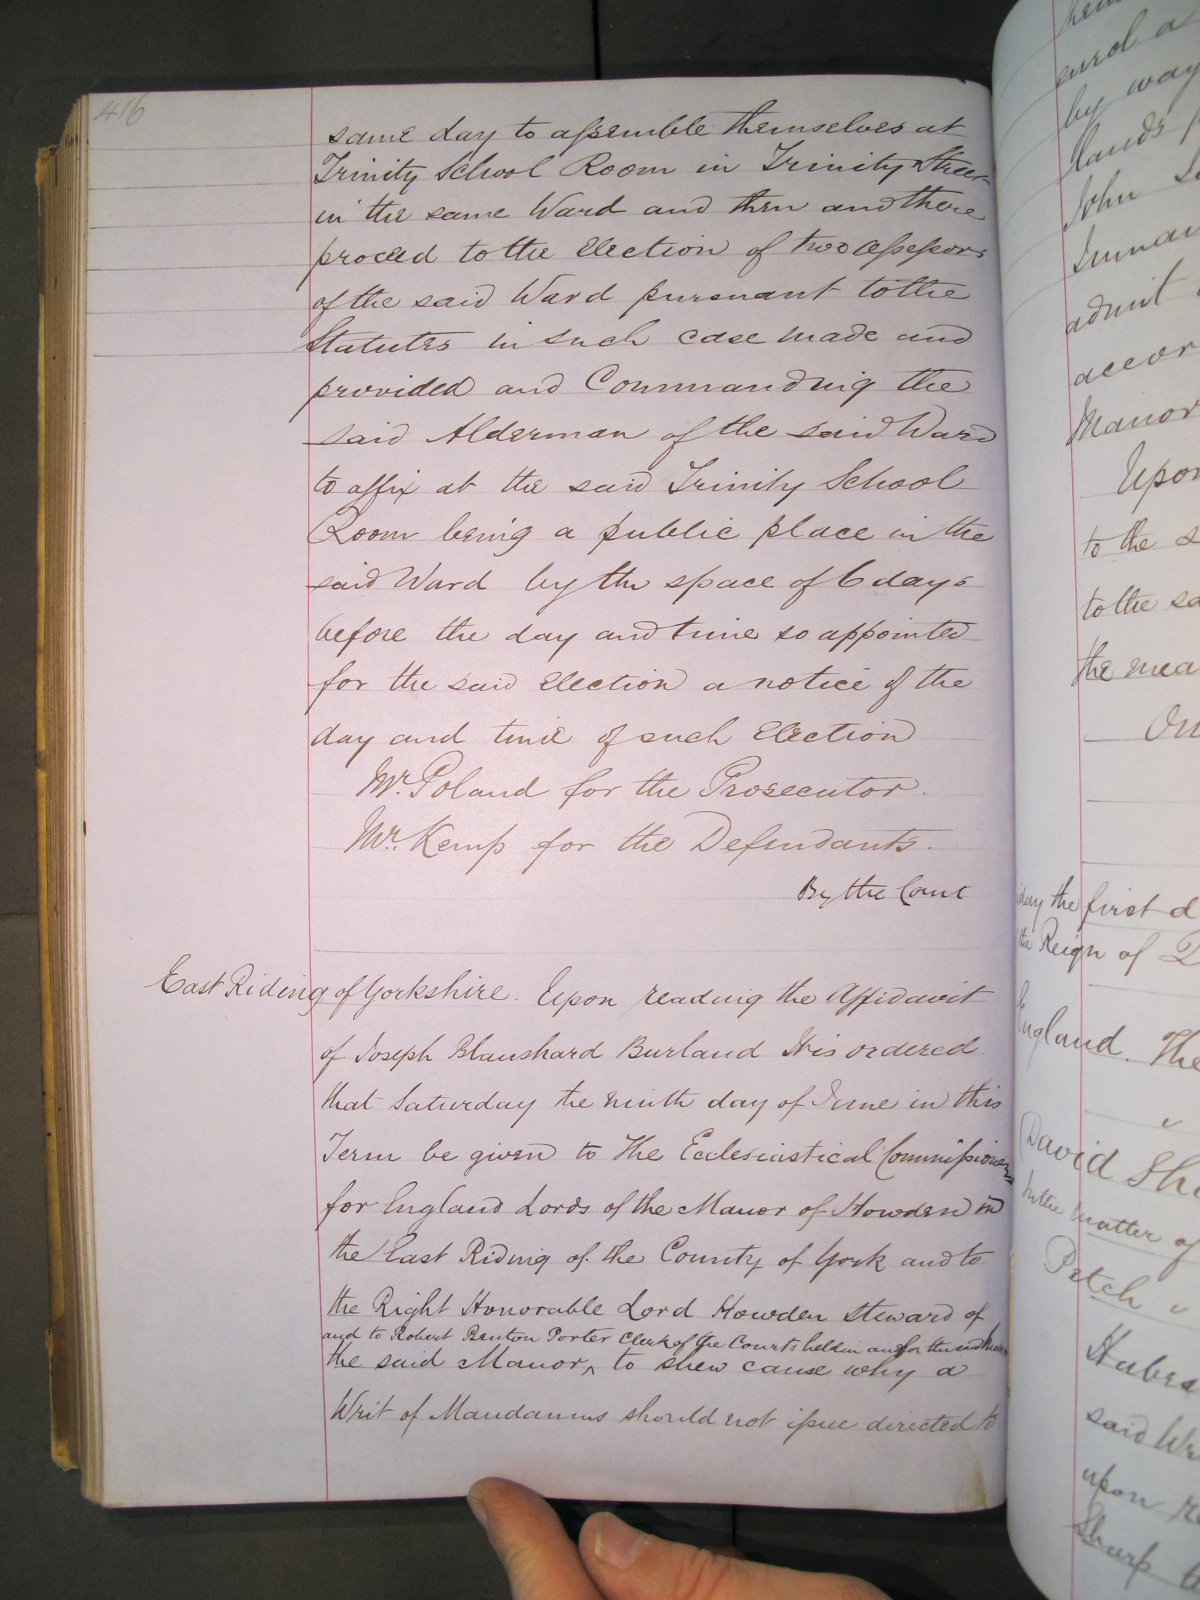 416
same day to assemble themselves at
Trinity School Room in Trinity Street
in the same Ward and then and there
proceed to the Election of two assessors
of the said Ward pursuant to the
Statutes in such case made and
provided and Commanding the
said Alderman of the said Ward
to affix at the said Trinity School
Room being a public place in the
said Ward by the space of 6 days
before the day and time so appointed
for the said Election a notice of the
day and time of such Election
Mr. Poland for the Prosecutor.
Mr. Kemp for the Defendants.
By the Court
East Riding of Yorkshire. Upon reading the Affidavit
of Joseph Blanshard Burland It is ordered
that Saturday the ninth day of June in this
Term be given to The Ecclesiastical Commissioners
for England Lords of the Manor of Howden in
the East Riding of the County of York and to
the Right Honorable Lord Howden Steward of
and to Robert Renton Porter Clerk of the Courts holden and for the said Manor
the said Manor ^ to shew cause why a
Writ of Mandamus should not issue directed to
enrol a
by way
lands
John
admit
accor
Manor
Upon
to the s
to the sa
the mea
day the first d
the Reign of
England. The
David Sha
In the matter of
Petch v
Habea
said Wr
upon re
Sharp